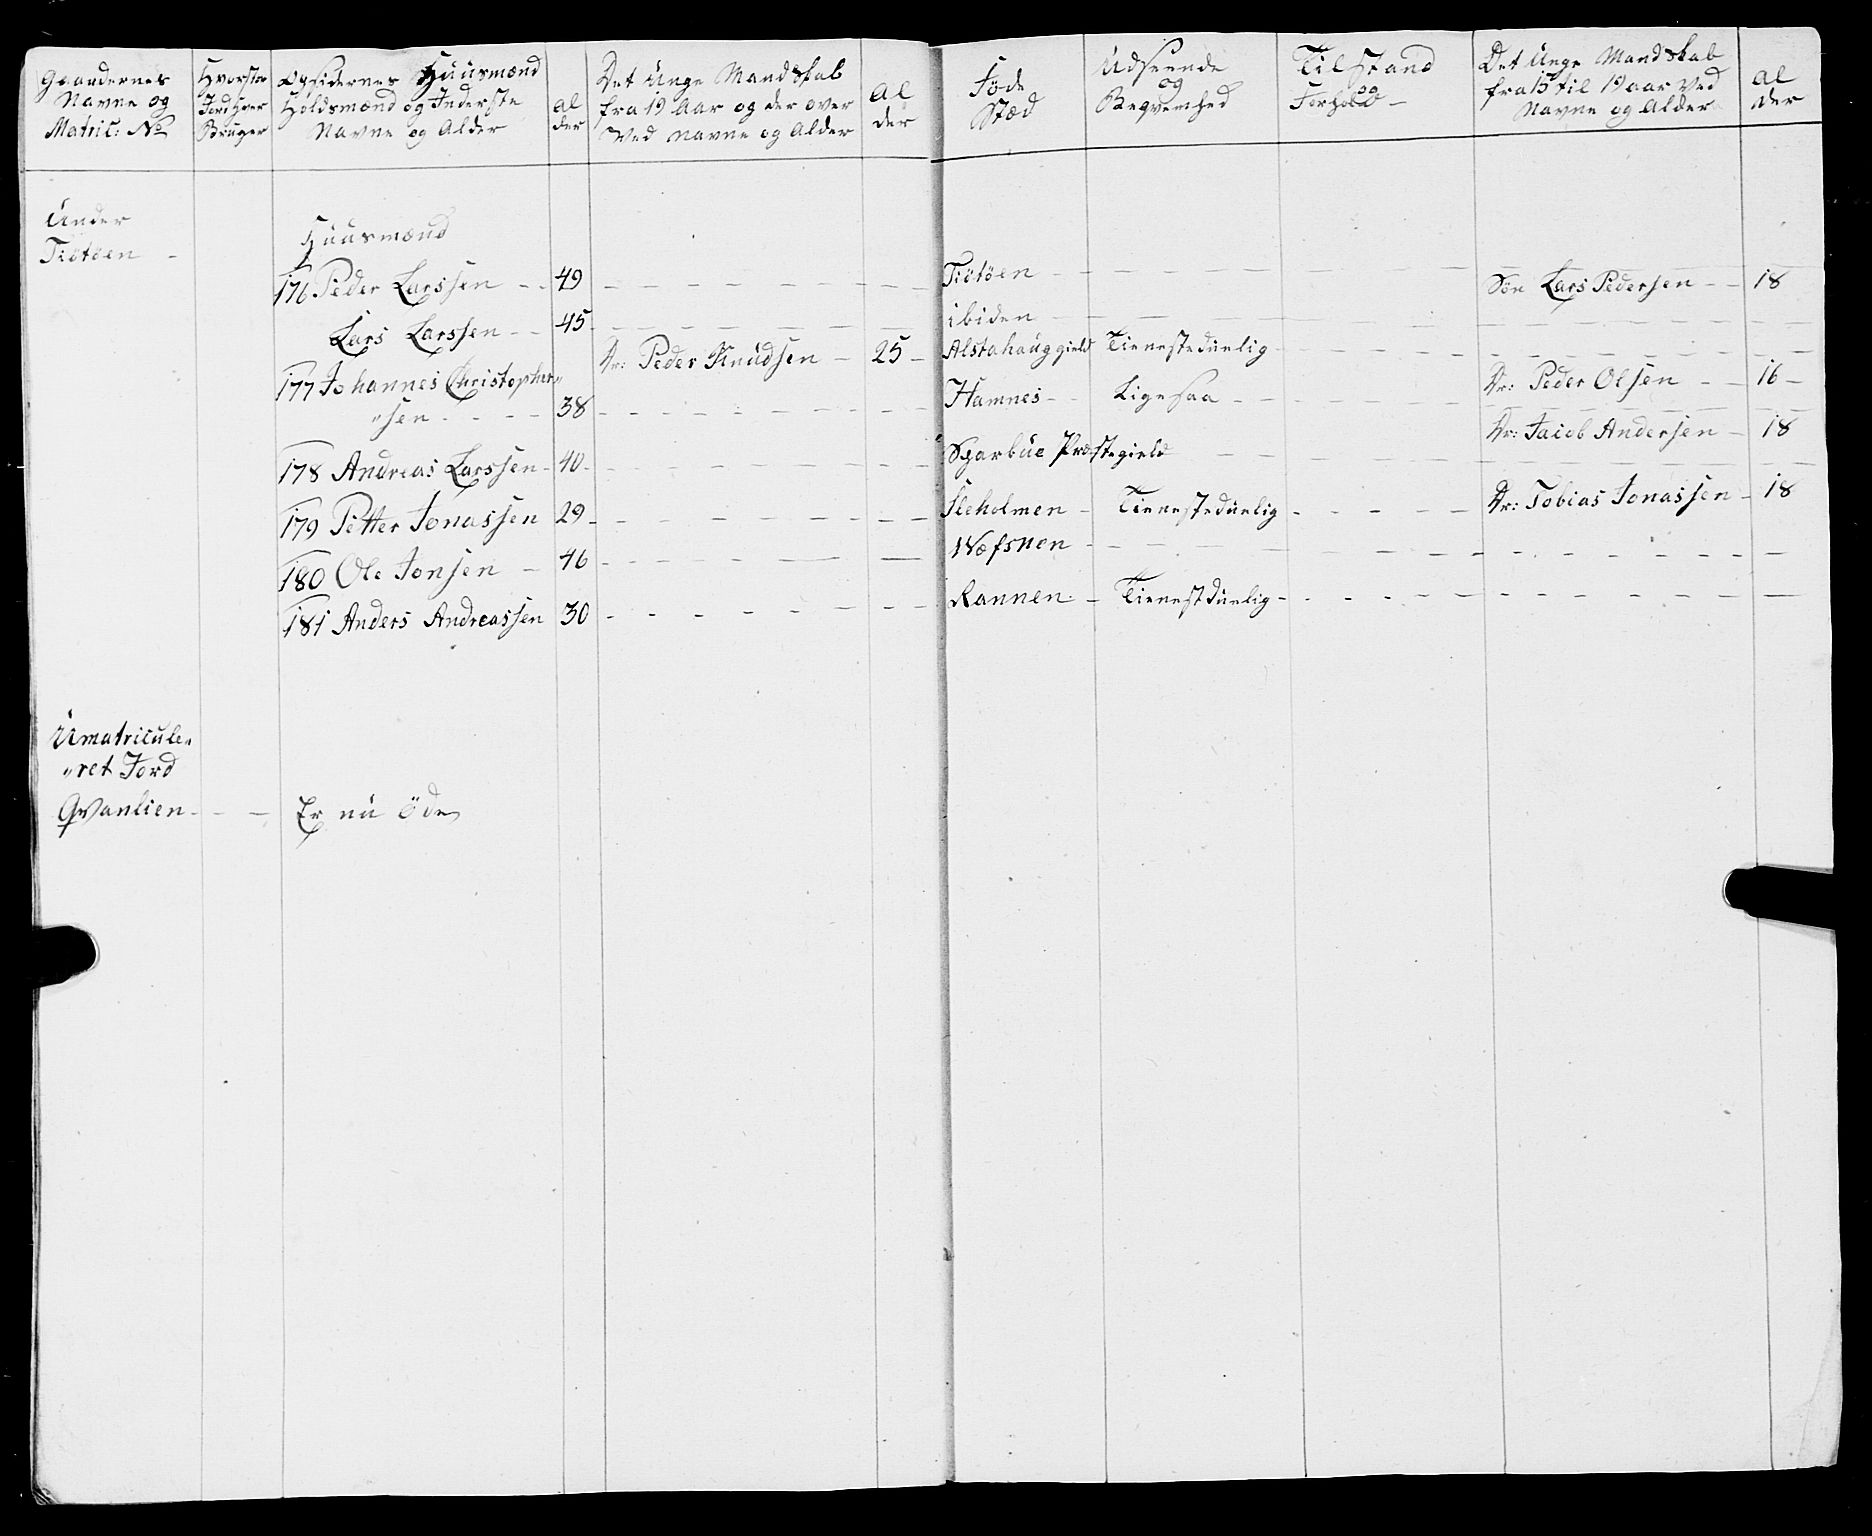 Gaardernes
Navne og
Matric: No
Hvorstor
Jord hver
Bruger
Opsidernes Huusmænd
Holdsmænd og Inderste
Navne og Alder
Al
der
Det Unge Mandskab
fra 19 Aar og der over
Ved navne og Alder
Al
der
Føde
Stæd
Udseende
og
Beqvemhed
Tilstand
og
Forhold
Det Unge Mandskab
fra 15 til 19 aar Ved
Navne og Alder
Al
der
Under
Tiötöen -
Huusmænd
176 Peder Larssen - - 49 Tiötöen Sön Lars Pedersen - - 18
Lars Larssen - - 45 ibiden
Dr: Peder Knudsen - 25 - Alstahaug gield Tienestedünlig
177 Johannes Christopher„
„sen - - - - 38 Hamnes - - Ligesaa Dr: Peder Olsen - - 16 -
178 Andreas Larssen - 40 - Sparbue Præstegield Dr: Jacob Andersen - 18
179 Petter Jonassen 29 - Sleholmen - Tienestedünlig Dr: Tobias Jonassen - 18
180 Ole Jonsen - 46 Wefsnen
181 Anders Andreassen 30 Rannen - Tienestdünlig
Umatricule„
„ret Jord
Qvanlien - - - Er nü öde